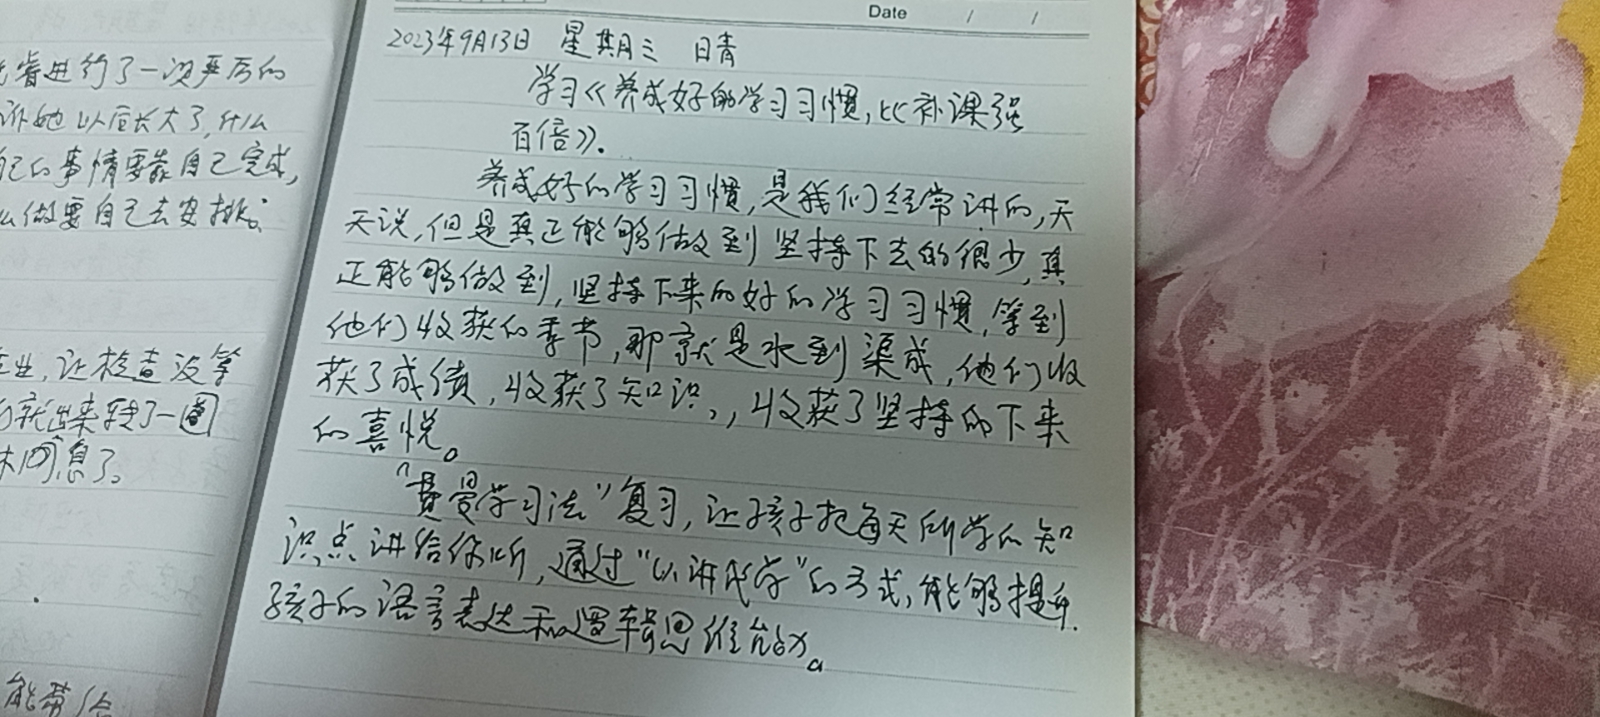 睿进行了一次严厉的
诉她以后长大了,什么
自己的事情要靠自己完成,
么做要自己去安排。
业,让检查没等
就出来转了一圈
休间息了。
能带给
Date / /
2023年9月13日 星期三 日青
学习《养成好的学习习惯,比补课强
百倍》.
养成好的学习习惯,是我们经常讲的,天
天说,但是真正能够做到坚持下去的很少,真
正能够做到,坚持下来的好的学习习惯,等到
他们收获的季节,那就是水到渠成,他们收
获了成绩,收获了知识,,收获了坚持的下来
的喜悦。
“费曼学习法”复习,让孩子把每天所学的知
识点讲给你听,通过“以讲代学”的方式,能够提升
孩子的语言表达和逻辑思维能力。